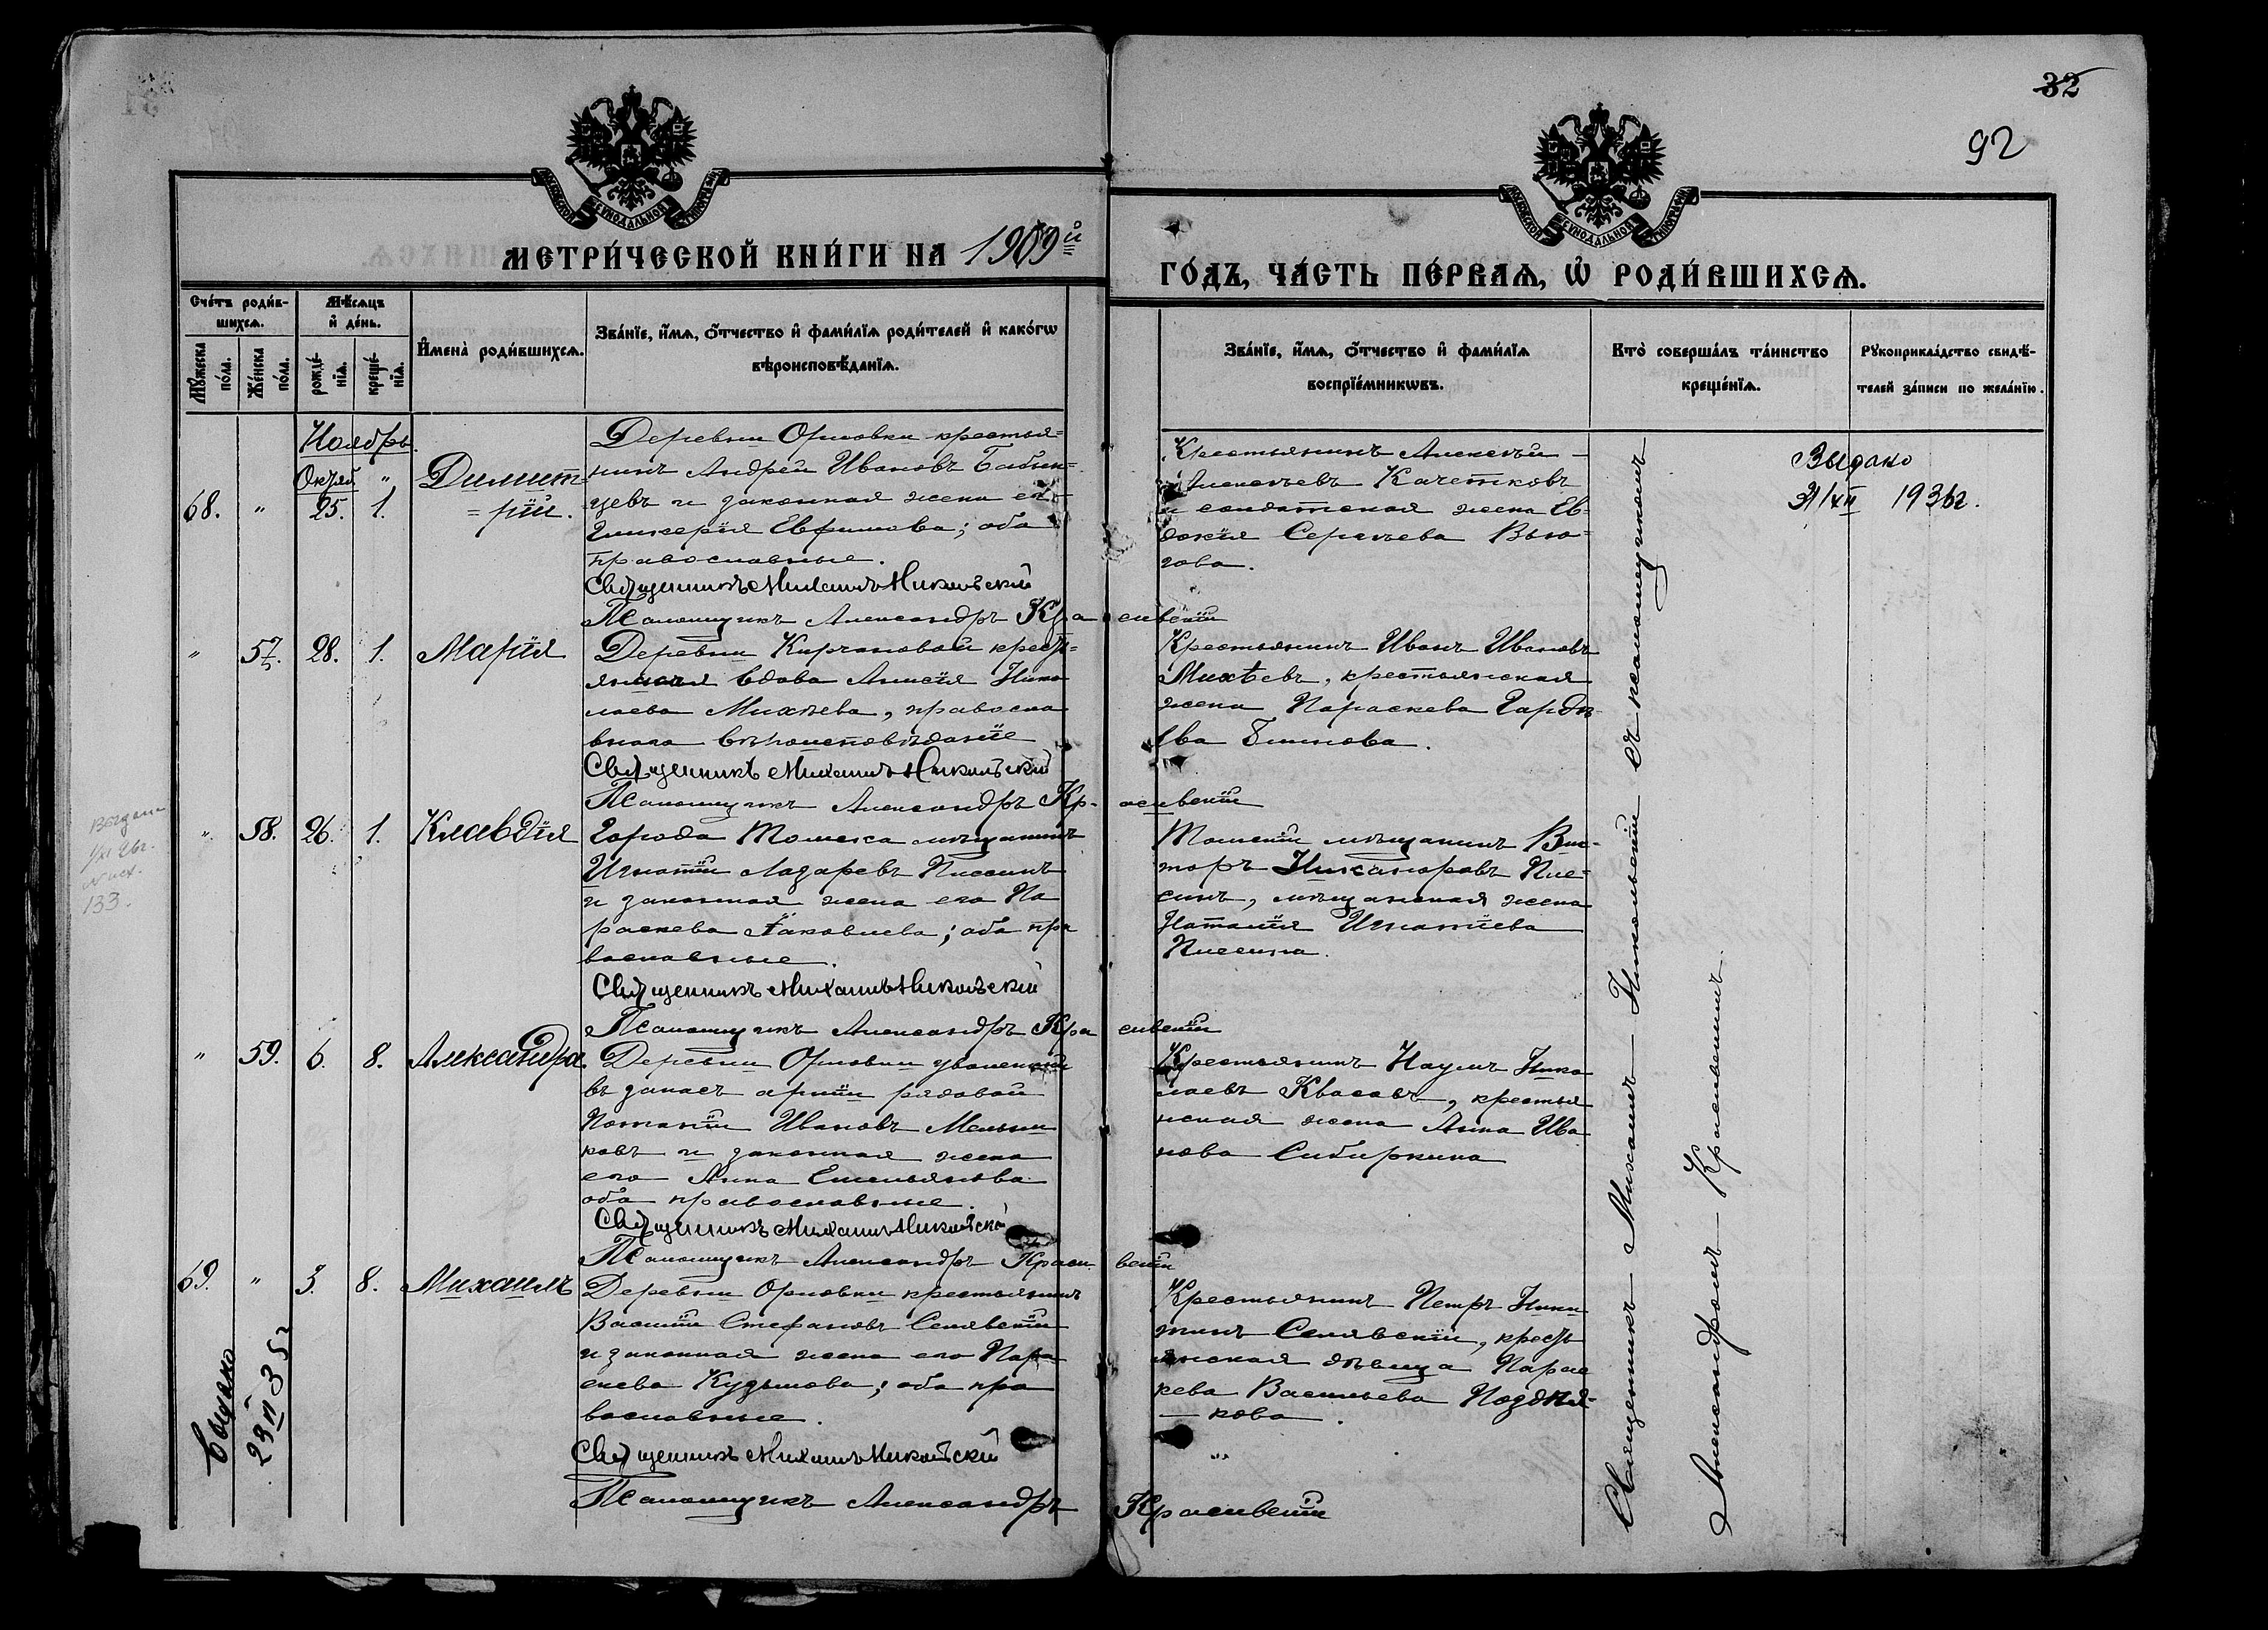 32
92
МЕТРИ́ЧЕСКОЙ КНИ́ГИ НА 1909й
ГО́ДЪ, ЧА́СТЬ ПЕ́РВАѦ, Ѡ҆ РОДИ́ВШИХСѦ.
Сче́тъ роди́в-
шихсѧ.
Мꙋ́жеска по́ла.
Же́нска по́ла.
Мѣ́сѧцъ
и҆ де́нь.
рожде́-
нїѧ.
креще́-
нїѧ.
И҆мена̀ роди́вшихсѧ.
Зва́нїе, и҆́мѧ, ѻ҆́тчество и҆ фами́лїѧ роди́телей и҆ како́гѡ
вѣроисповѣ́данїѧ.
Зва́нїе, и҆́мѧ, ѻ҆́тчество и҆ фами́лїѧ
воспрїе́мникѡвъ.
Кто̀ соверша́лъ та́инство
креще́нїѧ.
Рꙋкоприкла́дство свидѣ́-
телей за́писи по жела́нїю.
Ноябрь.
Октяб. "
68. " 25. 1.
Димит=
=рій.
Деревни Орловки крестья=
нинъ Андрей Ивановъ Бабин=
цевъ и законная жена его
Гликерія Евфимова; оба
православные.
Священникъ Михаилъ Никольскій
Псаломщикъ Александръ Красивскій
Крестьянинъ Алексѣй
Алексѣевъ Качетковъ
и солдатская жена Ев-
докія Сергѣева Вью=
гова.
Выдано
31/XII 1936г.
" 57. 28. 1. Марія
Деревни Кирчановой крест=
янская вдова Анисія Нико
лаева Михѣева, правосла
внаго вѣроисповѣданіе
Священникъ Михаилъ Никольскій
Псаломщикъ Александръ Красивскій
Крестьянинъ Иванъ Ивановъ
Михѣевъ, крестьянская
жена Параскева Гордѣ-
ева
Выдано
133.
" 58. 26. 1. Клавдія
Города Томска мѣщанинъ
Игнатій Лазаревъ Писсинъ
и законная жена его Па
раскева Яковлева; оба пра
вославные.
Священникъ Михаилъ Никольскій
Псаломщикъ Александръ Красивскій
Томскій мѣщанинъ Вик-
торъ Никаноровъ Пис-
синъ, мѣщанская жена
Наталія Игнатіева
Писсина.
" 59. 6. 8. Александра.
Деревни Орловки уволенный
въ запасъ арміи рядовой
Потапій Ивановъ Мельни
ковъ и законная жена
его Анна Емельянова
оба православные.
Священникъ Михаилъ Никольскій
Псаломщикъ Александръ Красивскій
Крестьянинъ Наумъ Нико
лаевъ Квасовъ, крестья
нская жена Анна Ива
нова Сибиркина
69. " 3. 8. Михаилъ
Деревни Орловки крестьянинъ
Василій Стефановъ Селявскій
и законная жена его Пара
скева Кузьмова; оба пра
вославные.
Священникъ Михаилъ Никольскій
Псаломщикъ Александръ Красивскій
Крестьянинъ Петръ Ники
тинъ Селявскій, крестъ
янская дѣвица Парас
кева Васильева Поздня-
кова.
Выдано
23 II 35г
Священникъ Михаилъ Никольскій съ псаломщикомъ
Александромъ Красивскимъ.